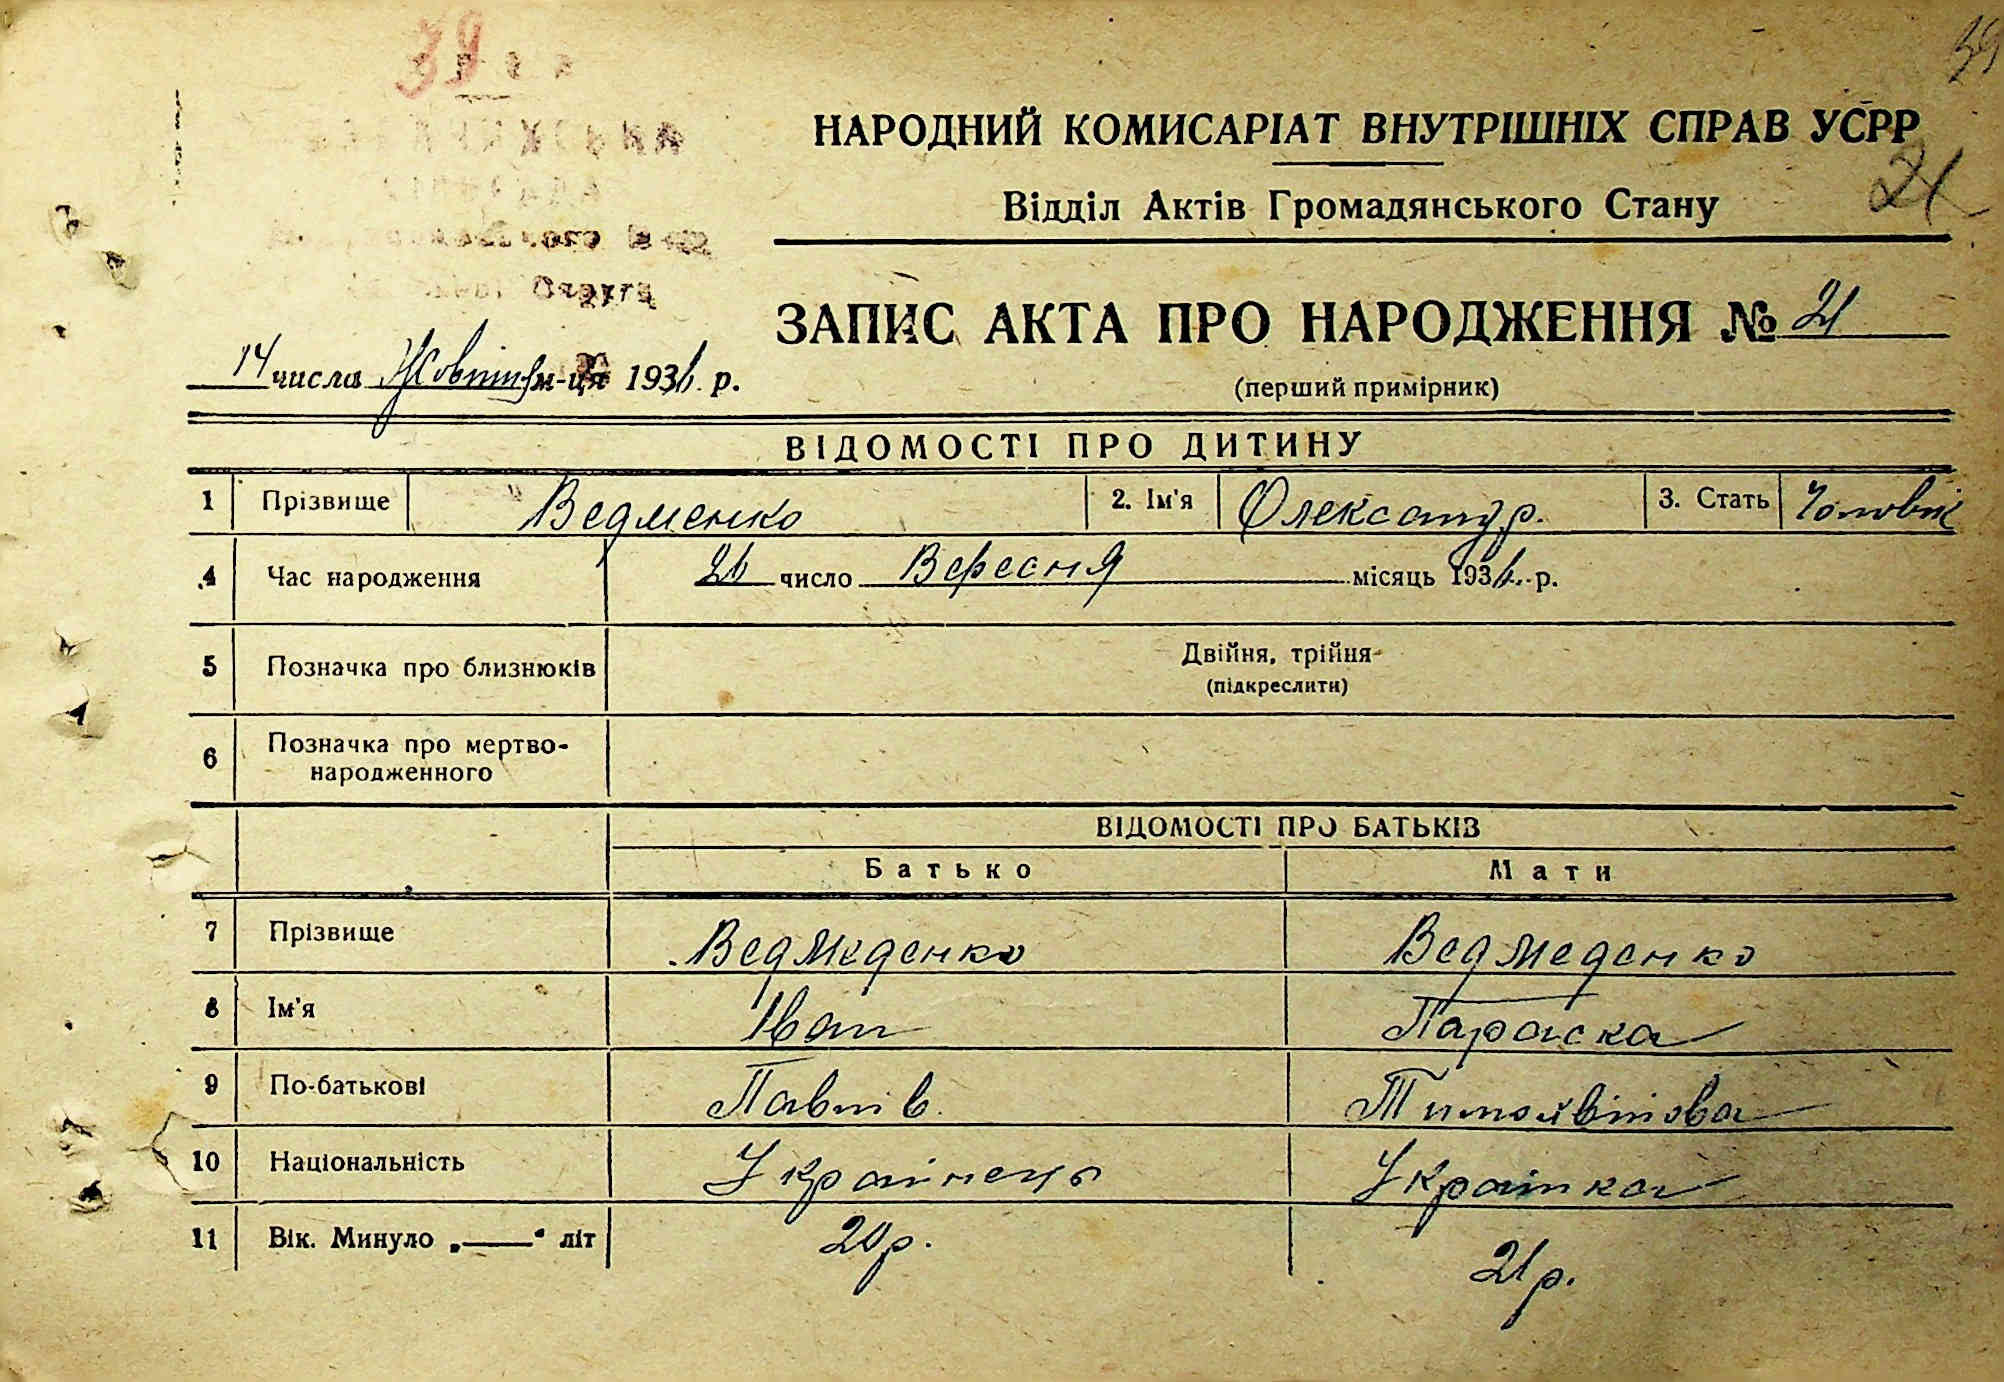 39
39
НАРОДНИЙ КОМИСАРІАТ ВНУТРІШНІХ СПРАВ УСРР
21
Відділ Актів Громадянського Стану
Округа
ЗАПИС АКТА ПРО НАРОДЖЕННЯ № 21
14 числа Жовтня м-ця 1936 р.
(перший примірник)
ВІДОМОСТІ ПРО ДИТИНУ
1 Прізвище Ведменко 2. Ім'я Олександр. 3. Стать Чоловік
4 Час народження 26 число Вересня місяць 1936 р.
5 Позначка про близнюків Двійня, трійня
(підкреслити)
6 Позначка про мертво-
народженного
ВІДОМОСТІ ПРО БАТЬКІВ
Батько Мати
7 Прізвище Ведмеденко Ведмеденко
8 Ім'я Іван Параска
9 По-батькові Павлів
10 Національність Українець Українка
11 Вік. Минуло „——“ літ 20 р. 21 р.